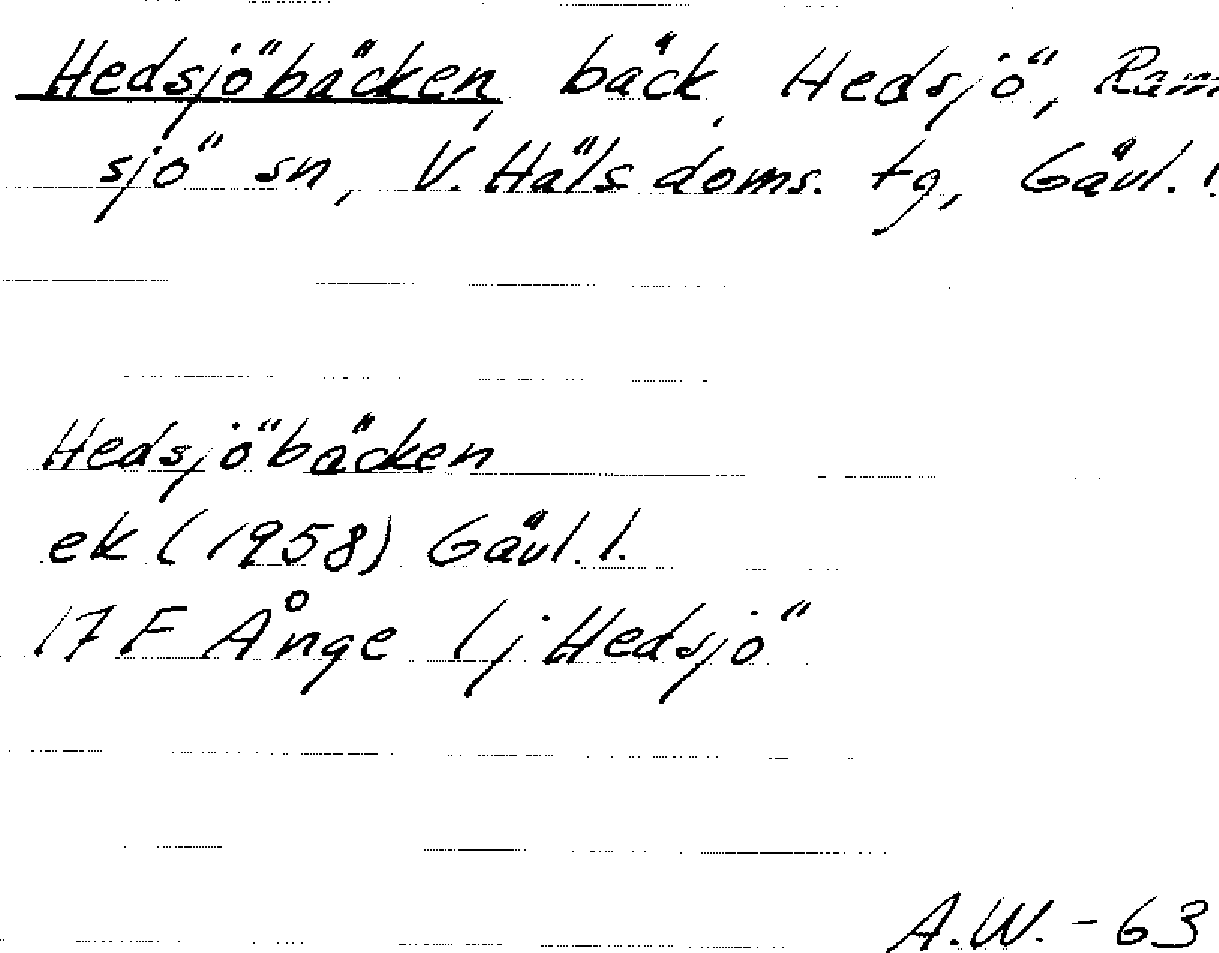 Hedsjöbäcken, bäck, Hedsjö, Ram
sjö sn, V. Häls doms. tg, Gävl. l.
Hedsjöbäcken
ek (1958) Gävl. l.
17 F Ånge l j Hedsjö
A.W. - 63